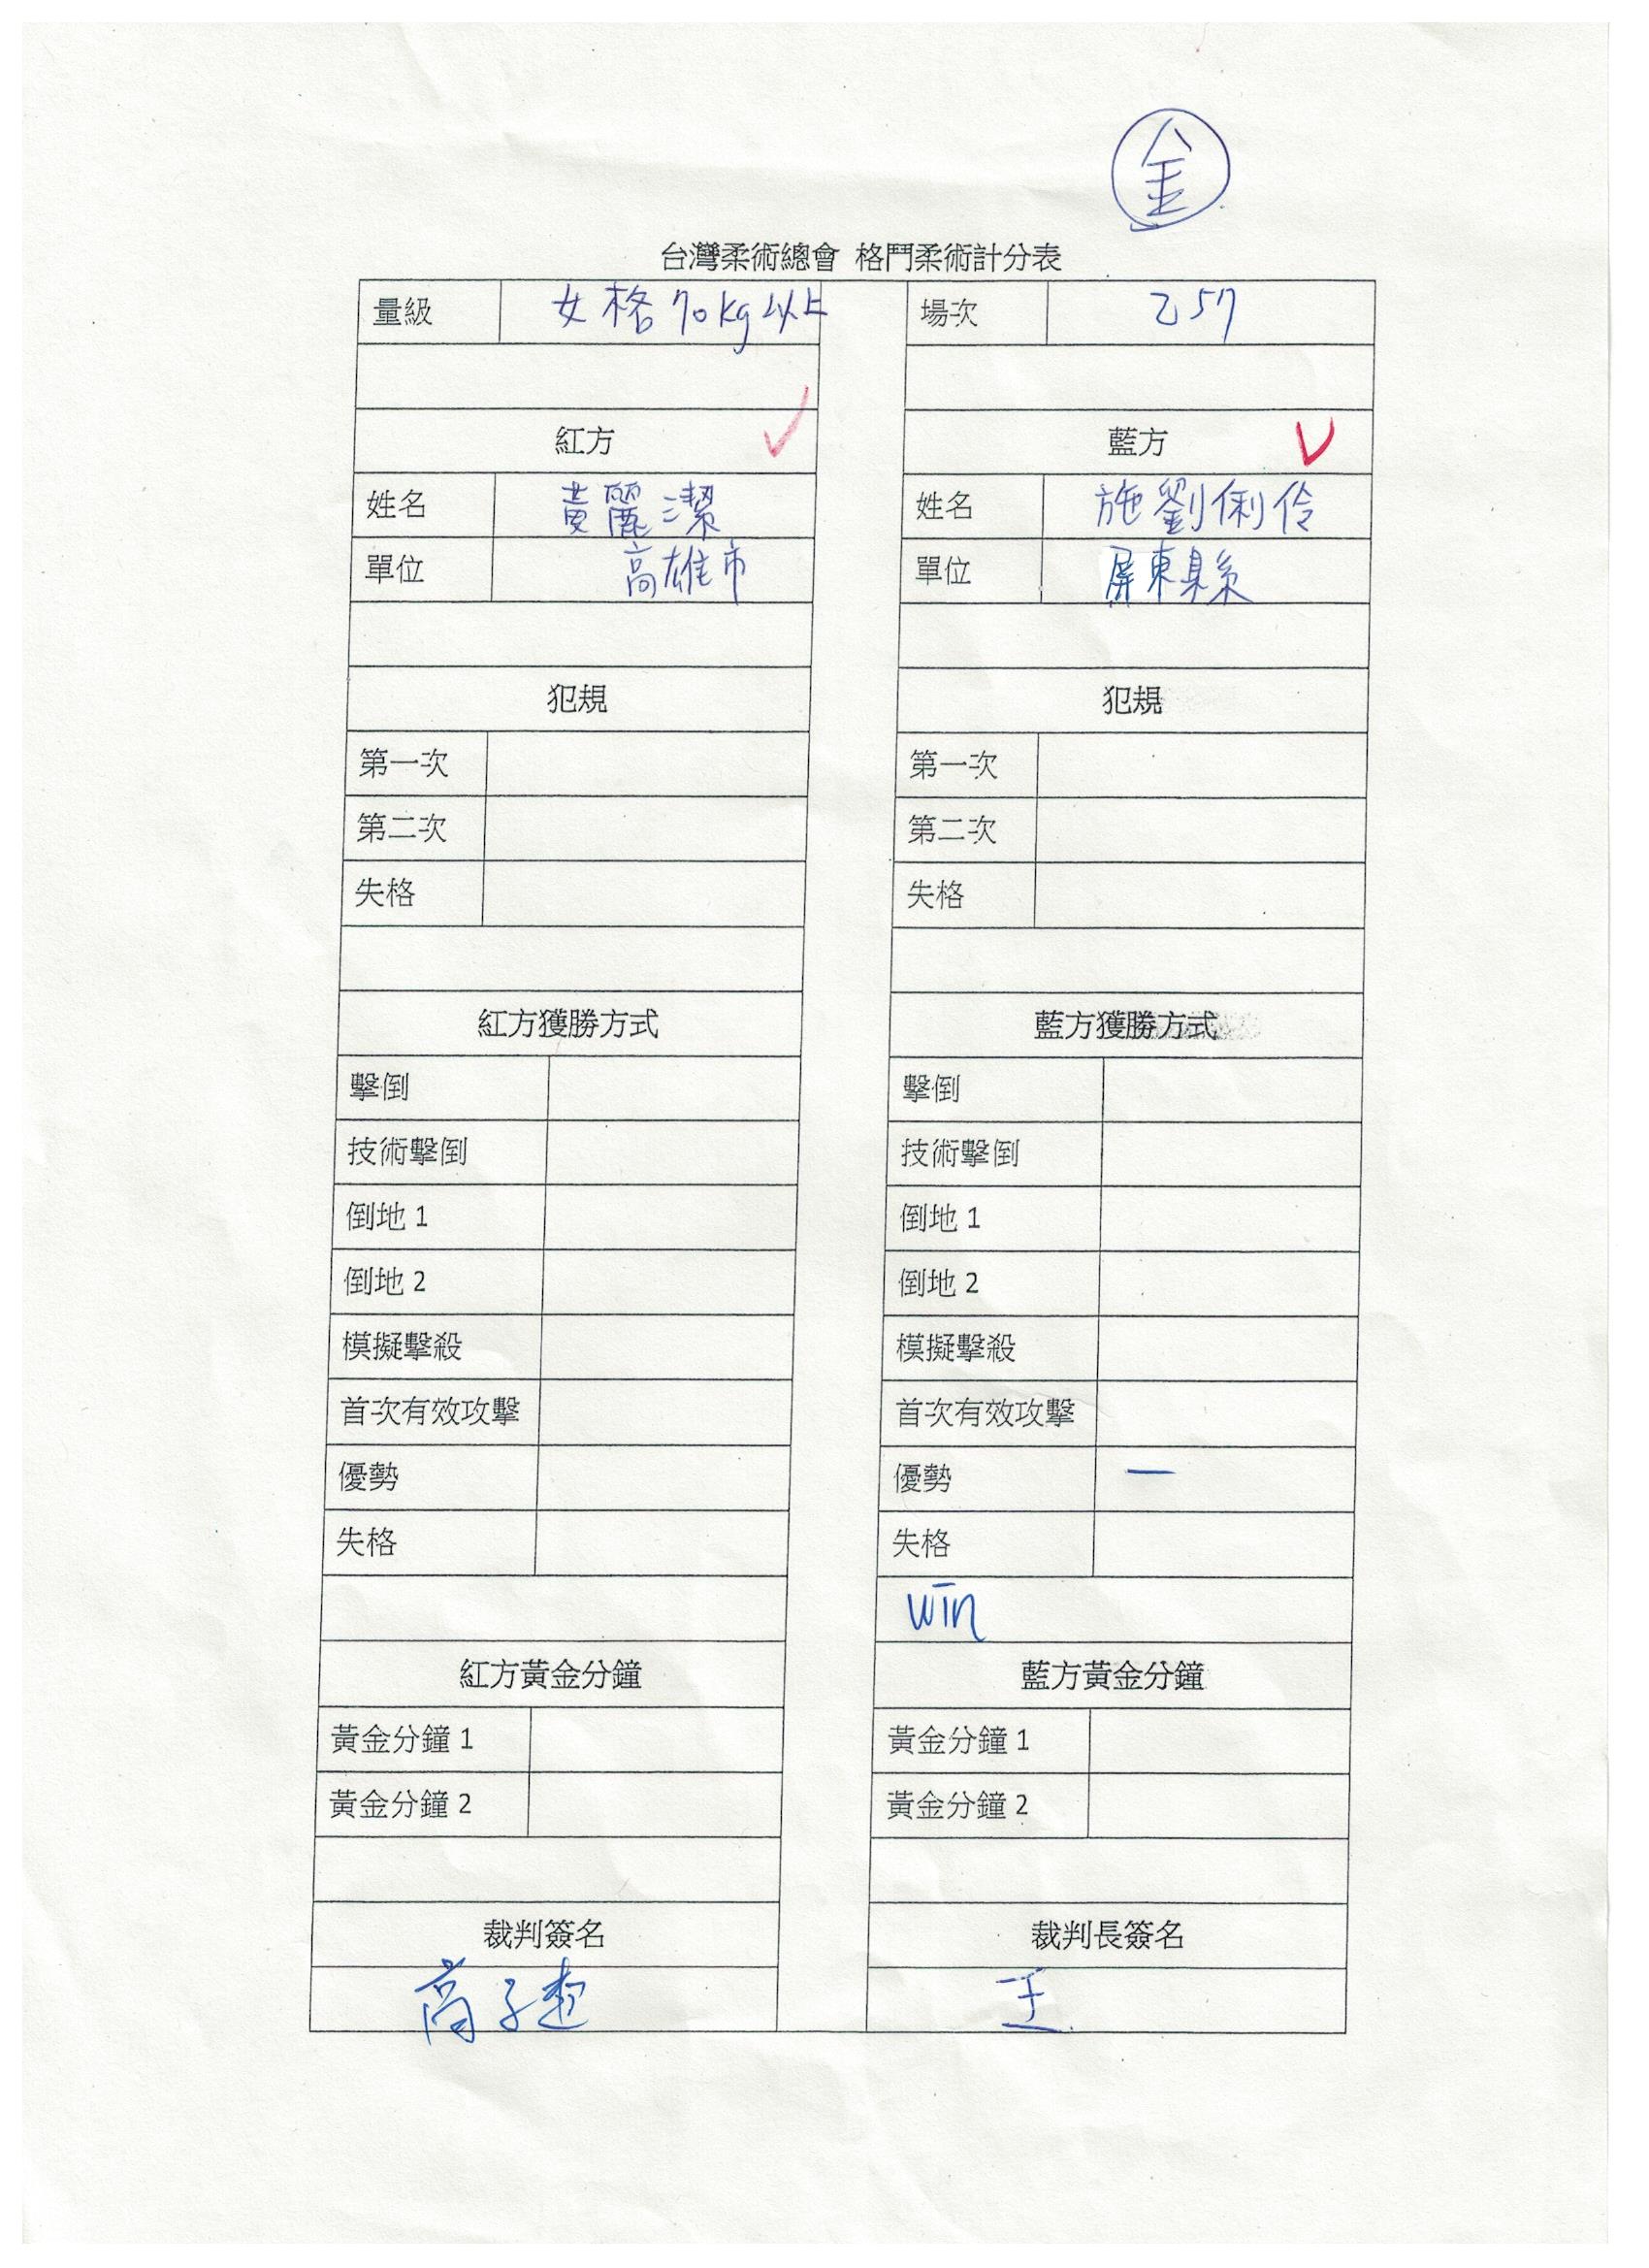 金
台灣柔術總會 格鬥柔術計分表
量級 女格70kg以上 場次 乙57
紅方 藍方
姓名 黃麗潔 姓名 施劉俐伶
單位 高雄市 單位 屏東縣
犯規 犯規
第一次 第一次
第二次 第二次
失格 失格
紅方獲勝方式 藍方獲勝方式
擊倒 擊倒
技術擊倒 技術擊倒
倒地 1 倒地 1
倒地 2 倒地 2
模擬擊殺 模擬擊殺
首次有效攻擊 首次有效攻擊
優勢 優勢 一
失格 失格
win
紅方黃金分鐘 藍方黃金分鐘
黃金分鐘 1 黃金分鐘 1
黃金分鐘 2 黃金分鐘 2
裁判簽名 裁判長簽名
高子 王